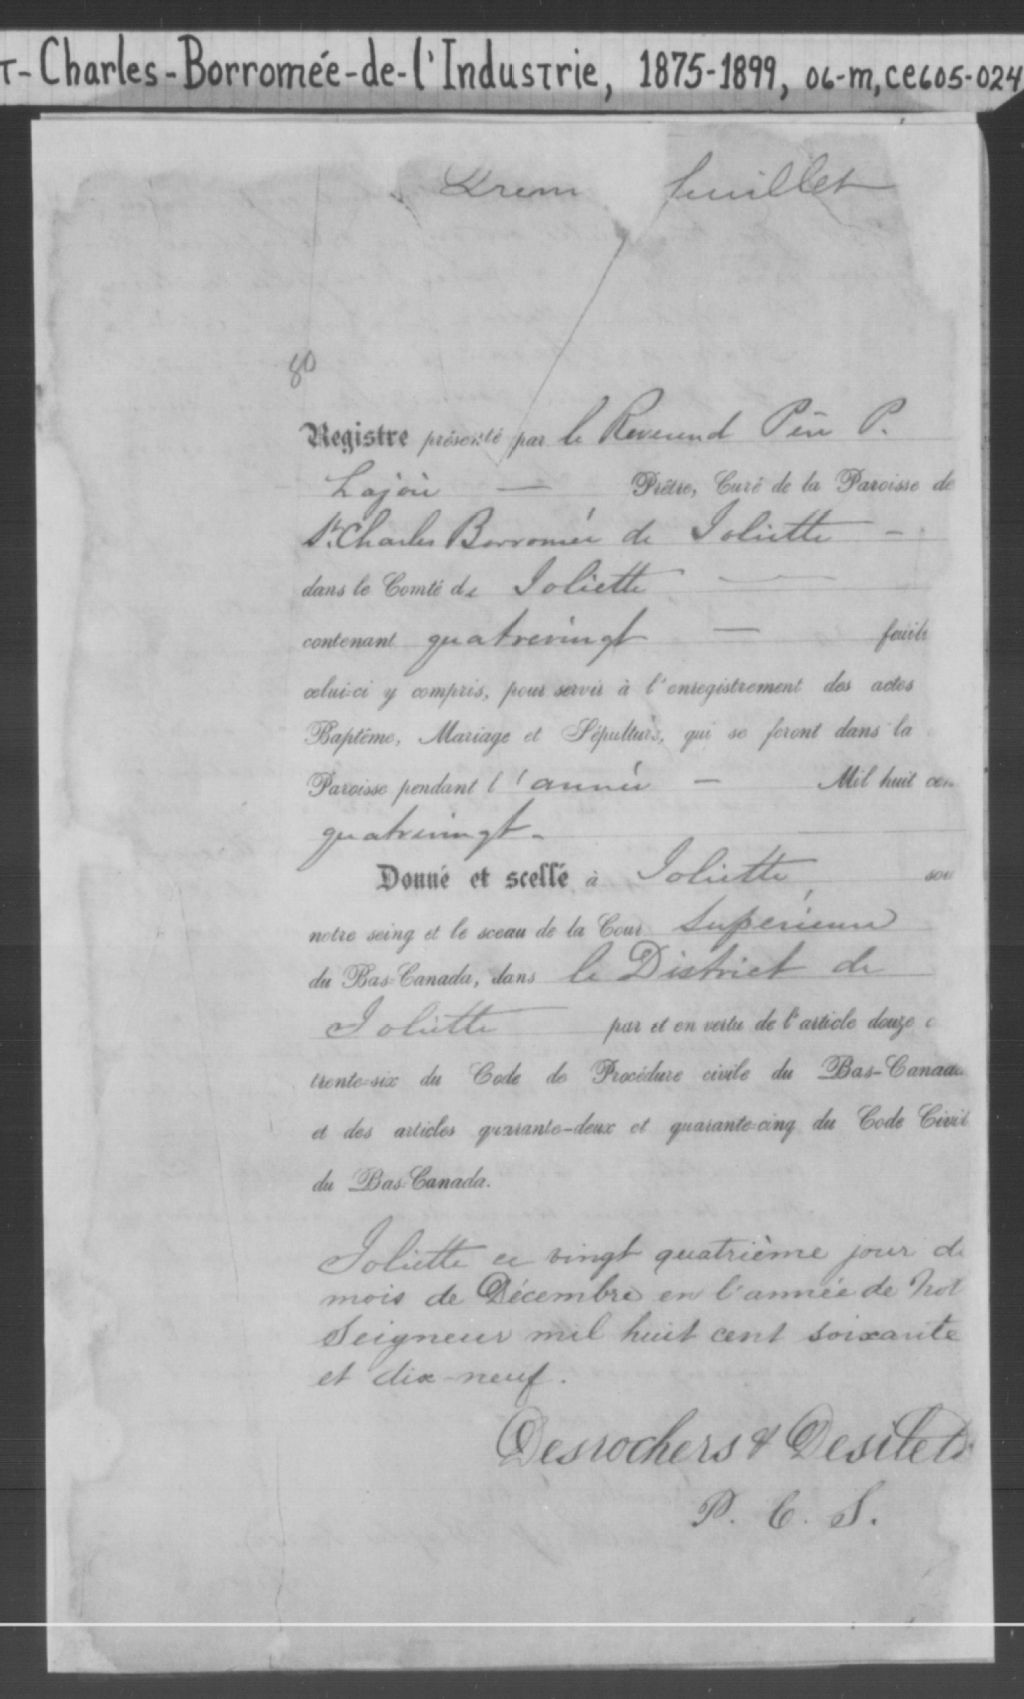 T-Charles-Borromée-de-l'Industrie, 1875-1899, 06-M, CE605-024
Prem feuillet
80
Registre présenté par le Reverend Père P.
Lajoie — Prêtre, Curé de la Paroisse de
St. Charles Borromée de Joliette -
dans le Comté de Joliette —
contenant quatrevingt — feuile
celui-ci y compris, pour servir à l'enregistrement des actes
Baptême, Mariage et Sépulture, qui se feront dans la
Paroisse pendant l'année — Mil huit cen
quatrevingt -
Donné et scellé à Joliette, sou
notre seing et le sceau de la Cour Supérieure
du Bas-Canada, dans le District de
Joliette par et en vertu de l'article douze c
trente-six du Code de Procédure civile du Bas-Canada
et des articles quarante-deux et quarante-cinq du Code Civil
du Bas-Canada.
Joliette ce vingt quatrième jour de
mois de Décembre en l'année de Not
Seigneur mil huit cent soixante
et dix-neuf.
Desrochers & Desilets
P. C. S.